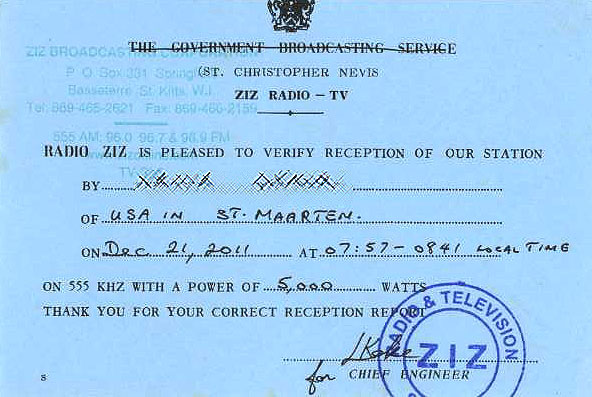 THE GOVERNMENT BROADCASTING SERVICE
ZIZ BROADCASTING
(ST. CHRISTOPHER NEVIS
P O Box 331
ZIZ RADIO – TV
Basseterre, St. Kitts, W.I.
Tel: 869-465-2621 Fax: 869-466-2159
555 AM; 96.0 96.7 & 98.9 FM
RADIO ZIZ IS PLEASED TO VERIFY RECEPTION OF OUR STATION
BY
OF USA IN ST. MAARTEN.
ON Dec 21, 2011 AT 07:57-0841 LOCAL TIME
ON 555 KHZ WITH A POWER OF 5,000 WATTS
THANK YOU FOR YOUR CORRECT RECEPTION REPORT
RADIO & TELEVISION
ZIZ
for CHIEF ENGINEER
S